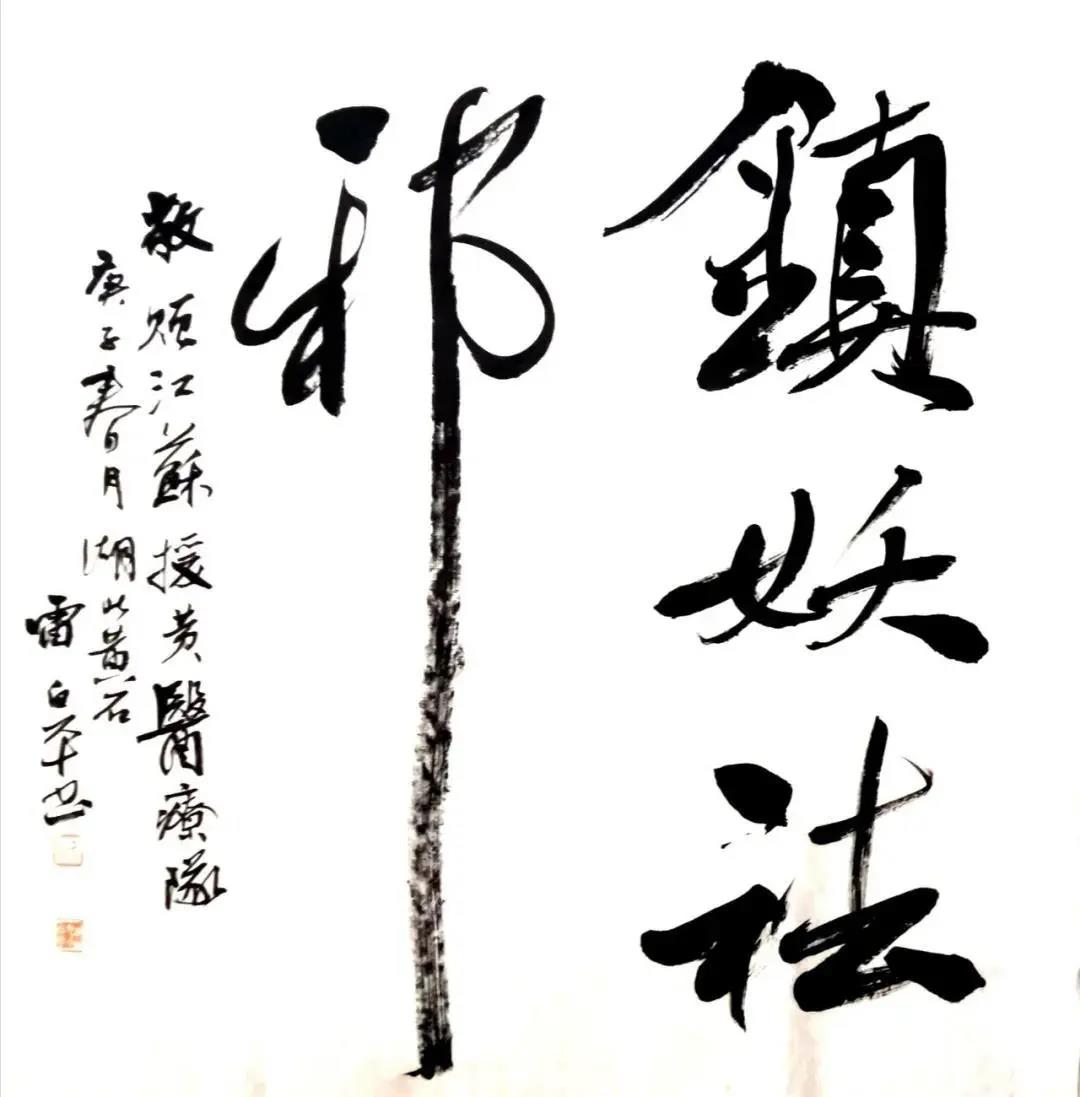 鎮妖祛
邪
敬颂江蘇援黄醫療隊
庚子春月湖北黃石
雷白平书